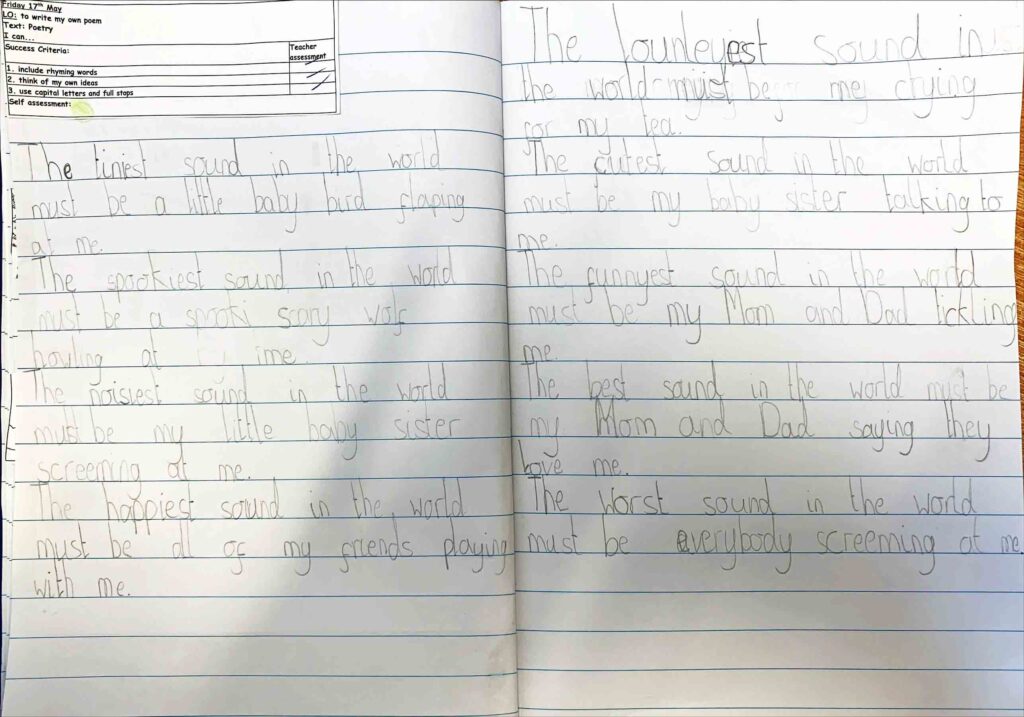 Friday 17th May
LO: to write my own poem
Text: Poetry
I can...
Success Criteria:
Teacher assessment
1. include rhyming words
2. think of my own ideas
3. use capital letters and full stops
Self assessment:
The tiniest sound in the world
must be a little baby bird flaping
at me.
The spookiest sound in the world
must be a spooki scary wolf
howling at me.
The noisiest sound in the world
must be my little baby sister
screeming at me.
The happiest sound in the world
must be all of my friends playing
with me.
The lounleyest sound in
the world must be me crying
for my tea.
The cutest sound in the world
must be my baby sister talking to
me.
The funnyest sound in the world
must be my Mom and Dad tickling
me.
The best sound in the world must be
my Mom and Dad saying they
love me.
The worst sound in the world
must be everybody screeming at me.